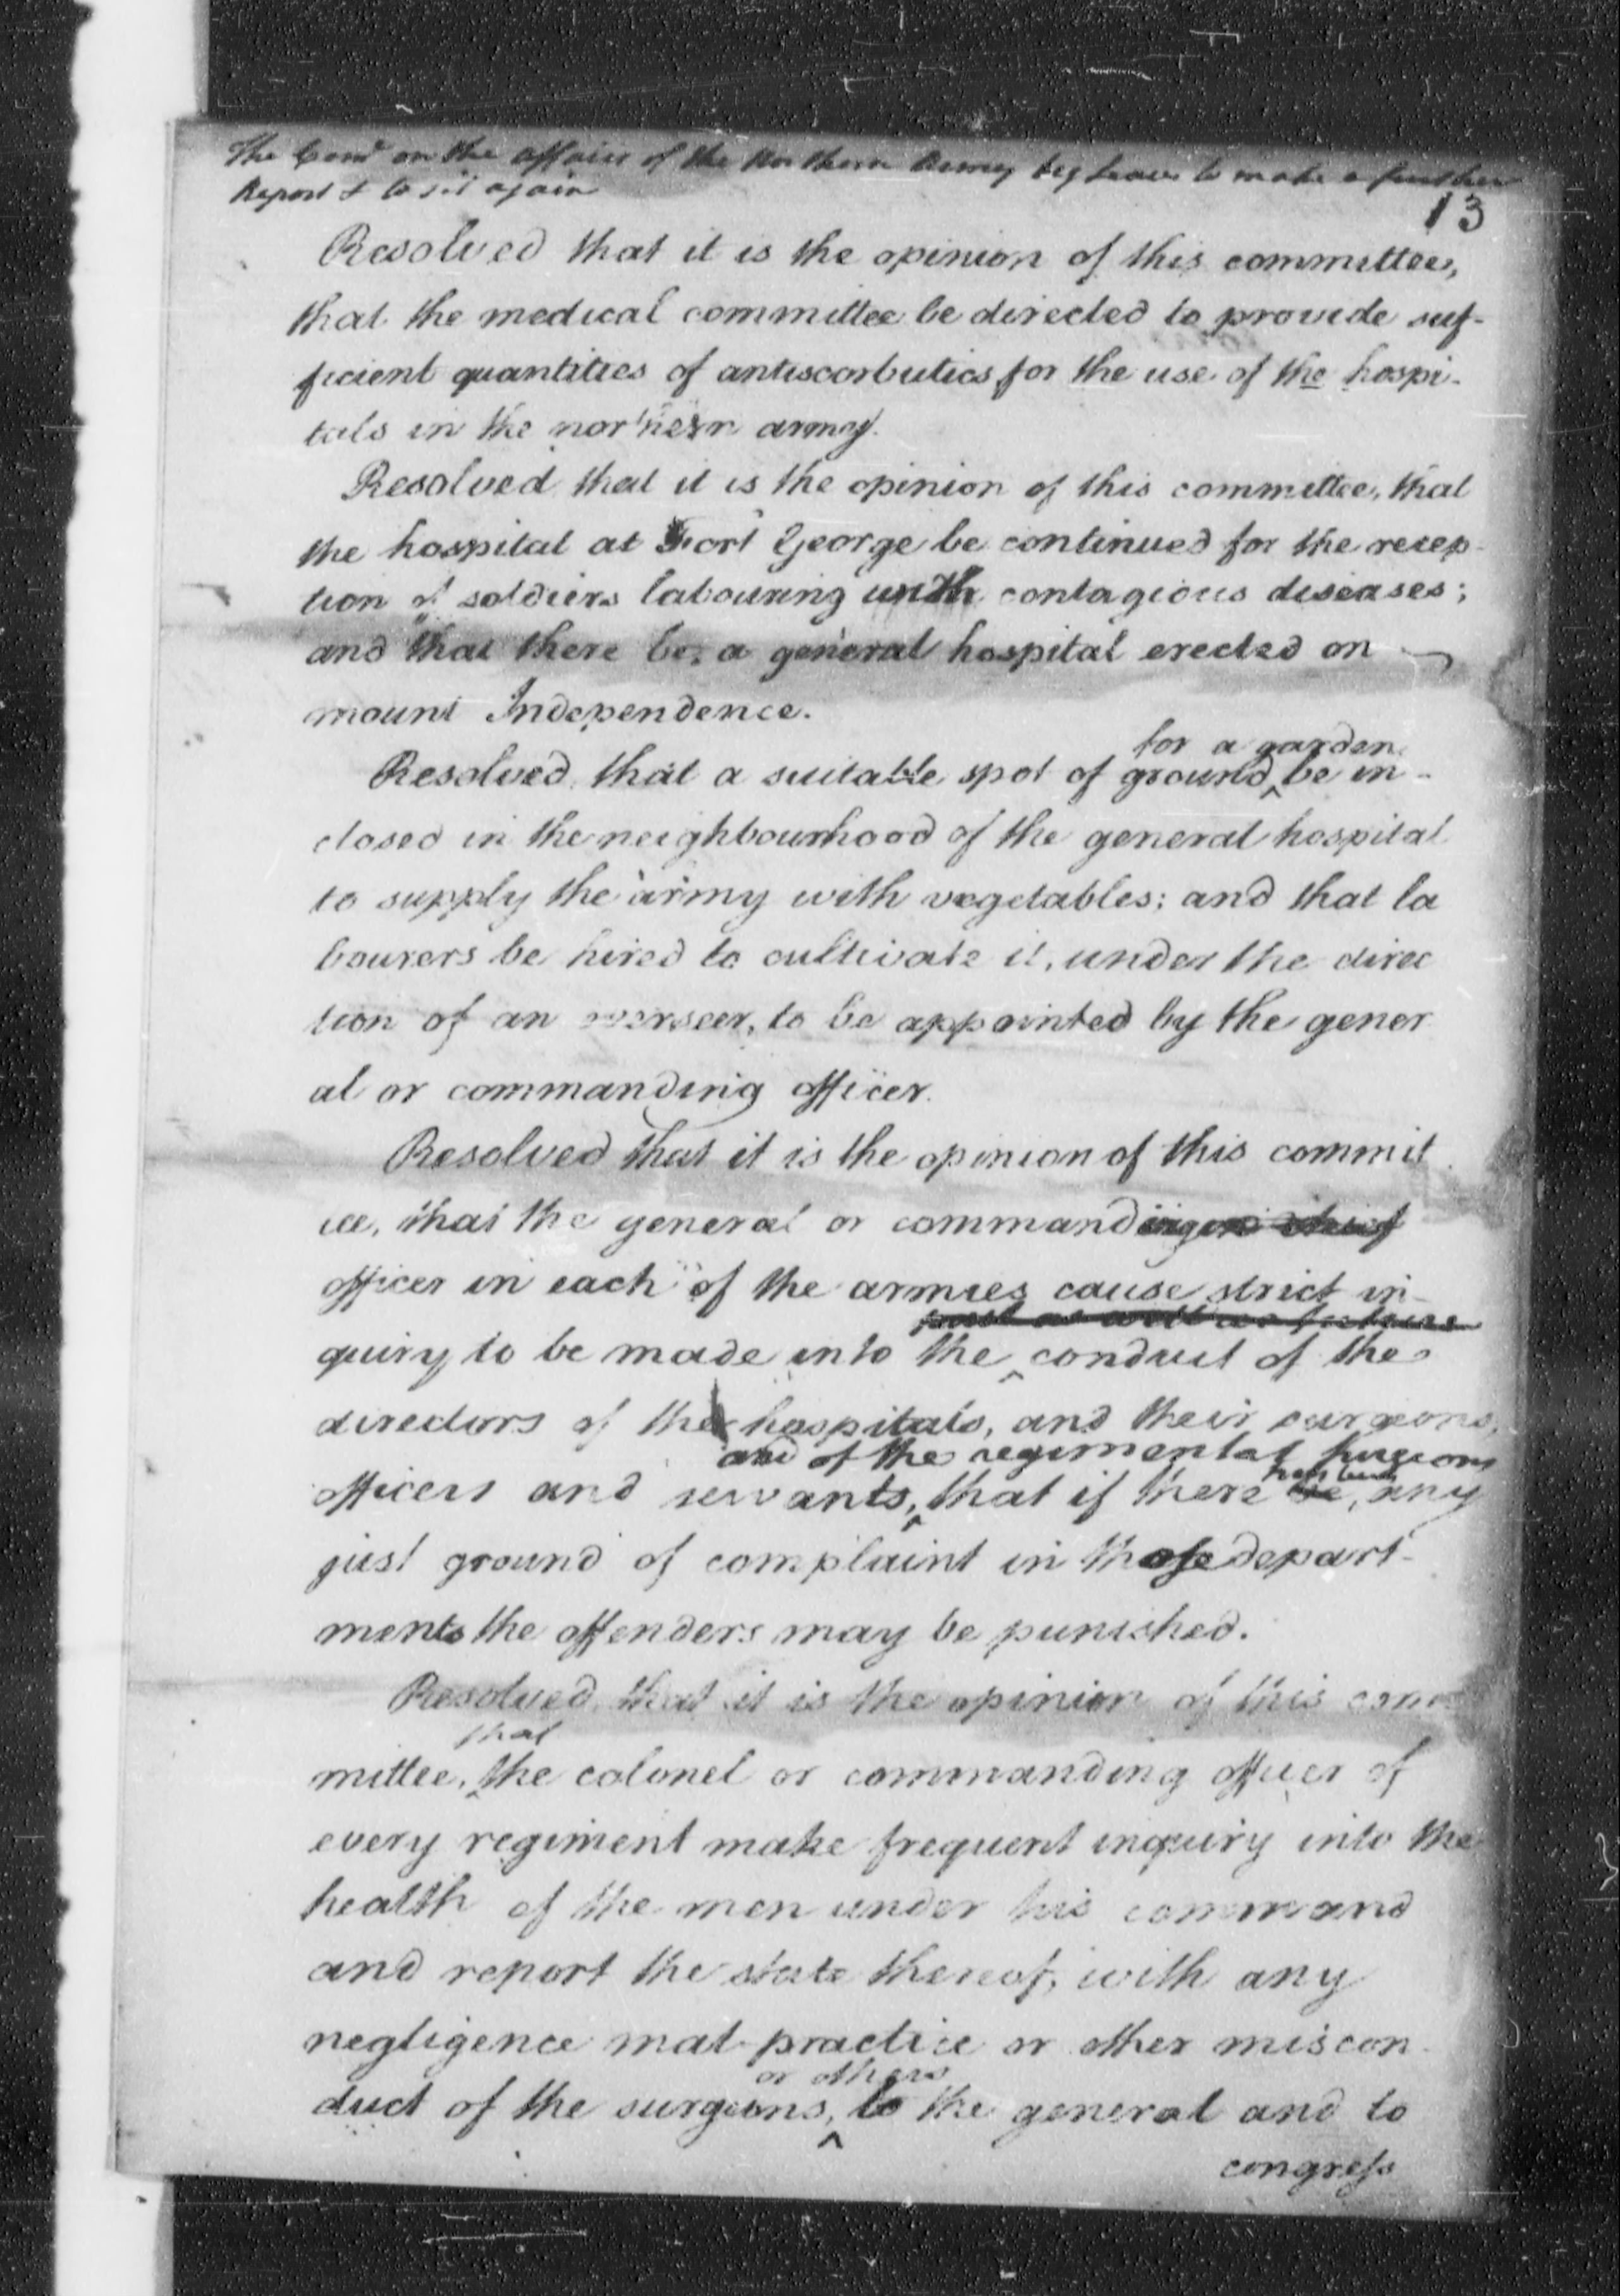 The Com^e on the affairs of the Northern Army beg leave to make a further
Report & to sit again
13
Resolved that it is the opinion of this committee,
that the medical committee be directed to provide suf-
ficient quantities of antiscorbutics for the use of the hospi-
tals in the northern army.
Resolved that it is the opinion of this committee, that
the hospital at Fort George be continued for the recep-
tion of soldiers labouring under contagious diseases;
and that there be a general hospital erected on
mount Independence.
for a garden
Resolved that a suitable spot of ground ^ be in-
closed in the neighbourhood of the general hospital
to supply the army with vegetables; and that la
bourers be hired to cultivate it, under the direc
tion of an overseer, to be appointed by the gener
al or commanding officer.
Resolved that it is the opinion of this commit
tee, that the general or commanding in chief
officer in each of the armies cause strict in-
past as well as future
quiry to be made into the ^ conduct of the
directors of the hospitals, and their surgeons,
and of the regimental surgeons
has been
officers and servants, ^ that if there be, any
just ground of complaint in those depart-
ments the offenders may be punished.
Resolved that it is the opinion of this com-
that
mittee, ^ the colonel or commanding officer of
every regiment make frequent inquiry into the
health of the men under his command
and report the state thereof, with any
negligence mal-practice or other miscon-
or others
duct of the surgeons, ^ to the general and to
congress